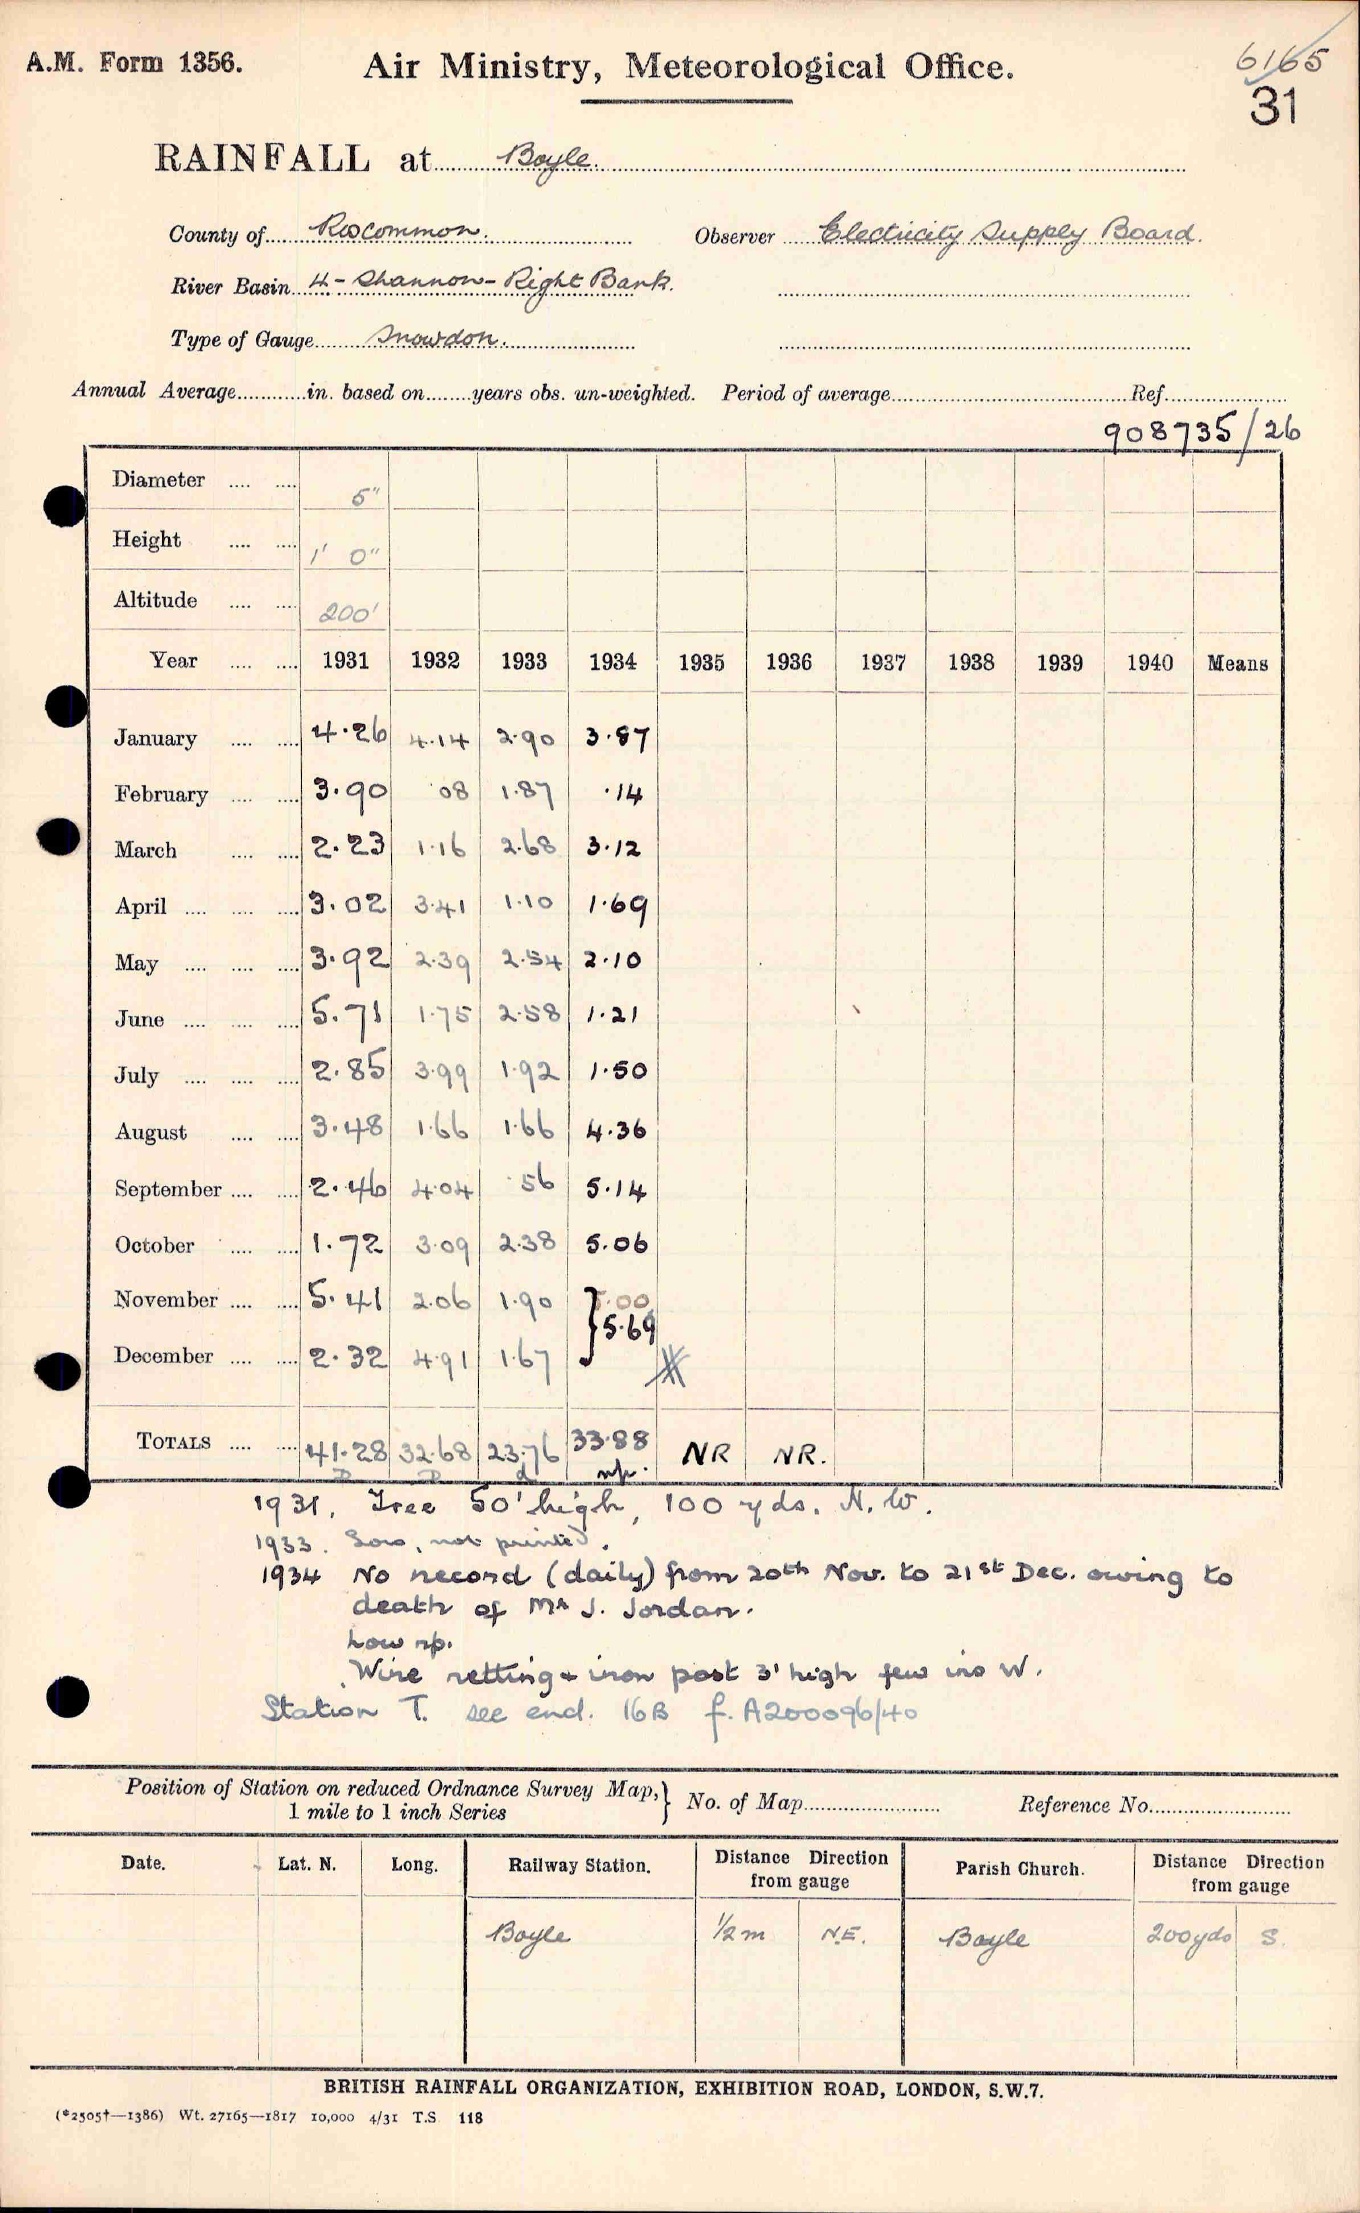 6165
A.M. Form 1356. Air Ministry, Meteorological Office. 31
RAINFALL at Boyle.
County of Roscommon. Observer Electricity Supply Board.
River Basin 4 - Shannon - Right Bank.
Type of Gauge Snowdon.
Annual Average............in. based on........years obs. un-weighted. Period of average........................Ref.....................
908735/26
Diameter .... .... 5"
Height .... .... 1' 0"
Altitude .... .... 200'
Year .... .... 1931 1932 1933 1934 1935 1936 1937 1938 1939 1940 Means
January .... .... 4.26 4.14 2.90 3.87
February .... .... 3.90 .08 1.87 .14
March .... .... 2.23 1.16 2.68 3.12
April .... .... .... 3.02 3.41 1.10 1.69
May .... .... .... 3.92 2.39 2.54 2.10
June .... .... .... 5.71 1.75 2.58 1.21
July .... .... .... 2.85 3.99 1.92 1.50
August .... .... 3.48 1.66 1.66 4.36
September .... .... 2.46 4.04 .56 5.14
October .... .... 1.72 3.09 2.38 5.06
November .... .... 5.41 2.06 1.90 } 5.69
December .... .... 2.32 4.91 1.67
TOTALS .... .... 41.28 32.68 23.76 33.88 NR NR.
D D d np.
1931. Tree 50' high, 100 yds. N.W.
1933. Low, not printed.
1934 No record (daily) from 20th Nov. to 21st Dec. owing to
death of Mr J. Jordan.
Low np.
Wire netting + iron post 3' high few ins W.
Station T. see encl. 16B f. A200096/40
Position of Station on reduced Ordnance Survey Map, } No. of Map........................ Reference No.........................
1 mile to 1 inch Series
Date. Lat. N. Long. Railway Station. Distance Direction from gauge Parish Church. Distance Direction from gauge
Boyle 1/2 m N.E. Boyle 200 yds S.
BRITISH RAINFALL ORGANIZATION, EXHIBITION ROAD, LONDON, S.W.7.
(*2505†—1386) Wt. 27165—1817 10,000 4/31 T.S 118